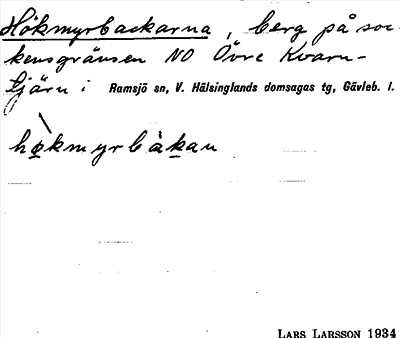 Hökmyrbackarna, berg på soc-
kensgränsen NO Övre Kvarn-
tjärn i Ramsjö sn, V. Hälsinglands domsagas tg, Gävleb. l.
hø̀kmyrbàkan
LARS LARSSON 1934